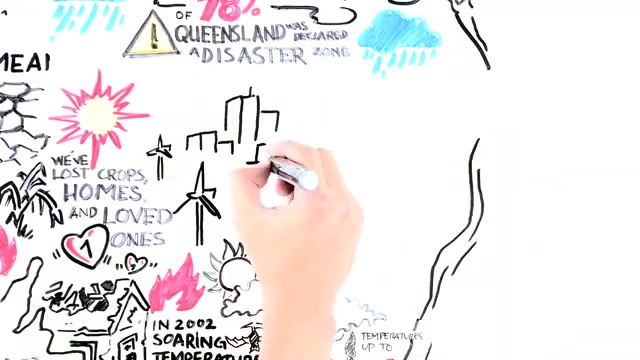 78%
OF
QUEENSLAND WAS
DECLARED
A DISASTER ZONE
MEAN
WE'VE
LOST CROPS,
HOMES,
AND LOVED
ONES
1
IN 2002
SOARING
TEMPERATURE
TEMPERATURES
UP TO